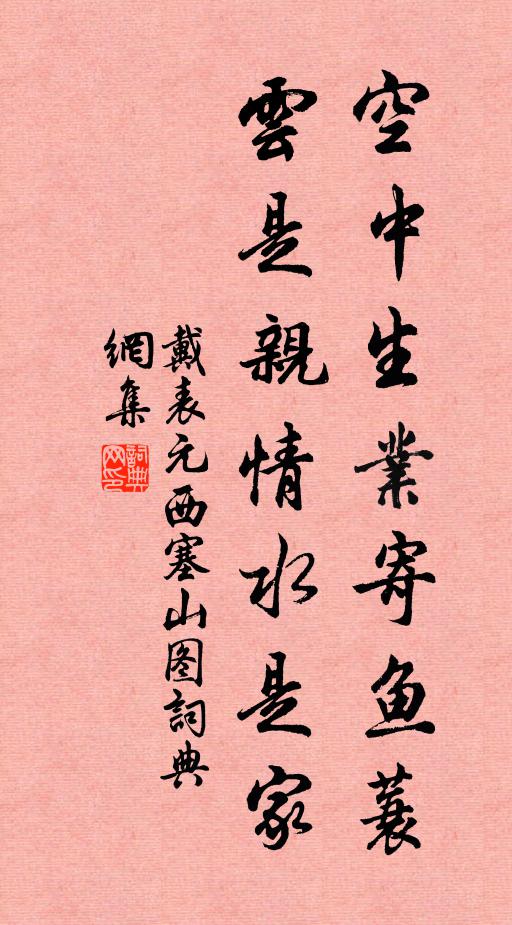 空中生業寄鱼蓑
雲是親情水是家
戴表元西塞山图詞典
網集
詞典
网印